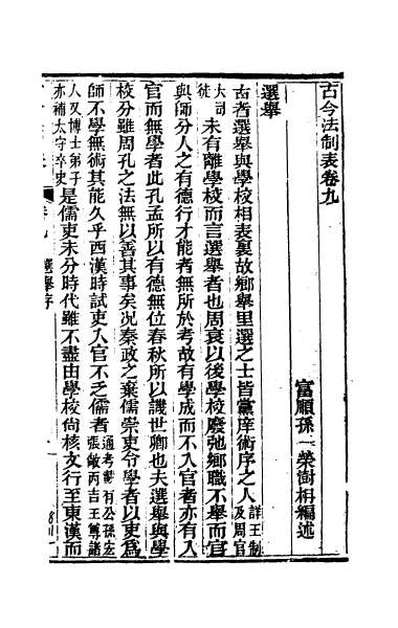 古今法制表卷九
富順孫榮澍楠編述
選舉
古者選舉與學校相表裏故鄉舉里選之士皆黨庠術序之人詳王制及周官
大司徒未有離學校而言選舉者也周衰以後學校廢弛鄉職不舉而官
與師分人之有德行才能者無所於考故有學成而不入官者亦有入
官而無學者此孔孟所以有德無位春秋所以譏世卿也夫選舉與學
校分雖周孔之法無以善其事矣况秦政之棄儒崇吏令學者以吏爲
師不學無術其能久乎西漢時試吏入官不乏儒者通考載有公孫宏張敞丙吉王尊諸
人又博士弟子亦補太守卒史是儒吏未分時代雖不盡由學校尙核文行至東漢而
卷九
選舉序
一